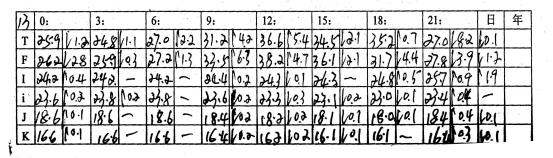 时 0: 3: 6: 9: 12: 15: 18: 21: 日 年
T 25.9 ↓1.2 24.8 ↓1.1 27.0 ↑2.2 31.2 ↑4.2 36.6 ↑5.4 34.5 ↓2.1 35.2 ↑0.7 27.0 ↓8.2 ↓0.1
F 26.2 ↓2.8 25.9 ↓0.3 27.2 ↑1.3 33.5 ↑6.3 38.2 ↑4.7 36.1 ↓2.1 31.7 ↓4.4 27.8 ↓3.9 ↓1.2
I 24.2 ↑0.4 24.2 — 24.2 — 24.4 ↑0.2 24.3 ↓0.1 26.3 — 24.8 ↑0.5 25.7 ↑0.9 ↑1.9
i 23.6 ↑0.2 23.8 ↑0.2 23.8 — 23.6 ↓0.2 23.3 ↓0.3 23.1 ↓0.2 23.0 ↓0.1 23.4 ↑0.4 —
J 18.6 ↑0.1 18.6 — 18.6 — 18.4 ↓0.2 18.2 ↓0.2 18.1 ↓0.1 18.0 ↓0.1 18.4 ↑0.4 ↓0.1
K 16.6 ↑0.1 16.6 — 16.6 — 16.4 ↓0.2 16.2 ↓0.2 16.1 ↓0.1 16.1 — 16.4 ↑0.3 ↓0.1